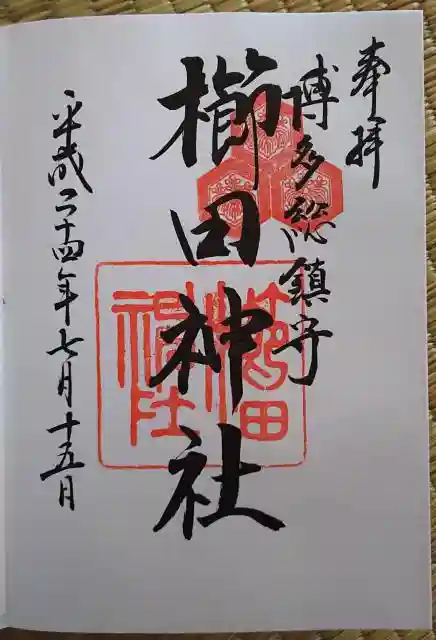 奉拝
博多総鎮守
櫛田神社
平成二十四年七月十五日
櫛田
神社